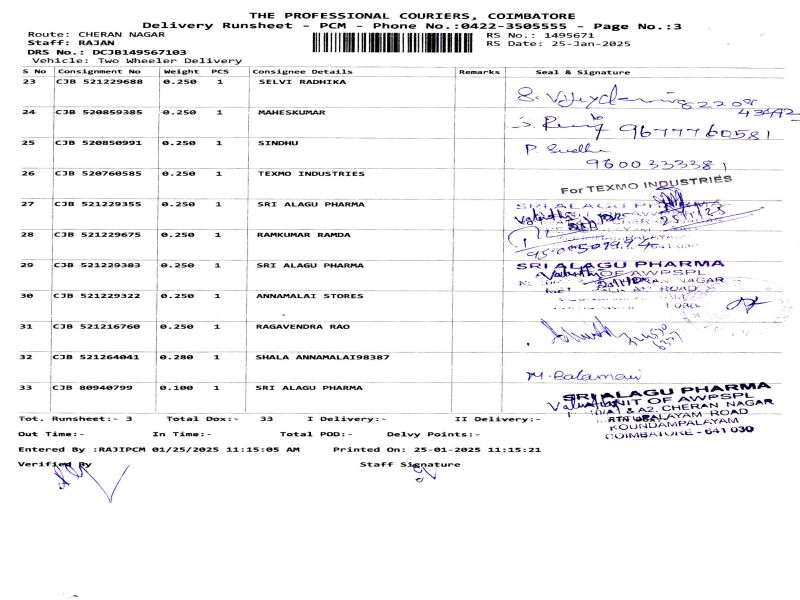 THE PROFESSIONAL COURIERS, COIMBATORE
Delivery Runsheet - PCM - Phone No.:0422-3505555 - Page No.:3
Route: CHERAN NAGAR RS No.: 1495671
Staff: RAJAN RS Date: 25-Jan-2025
DRS No.: DCJB149567103
Vehicle: Two Wheeler Delivery
S No Consignment No Weight PCS Consignee Details Remarks Seal & Signature
23 CJB 521229688 0.250 1 SELVI RADHIKA
24 CJB 520859385 0.250 1 MAHESKUMAR
9677760581
25 CJB 520850991 0.250 1 SINDHU P. Sudha
9600333381
26 CJB 520760585 0.250 1 TEXMO INDUSTRIES For TEXMO INDUSTRIES
27 CJB 521229355 0.250 1 SRI ALAGU PHARMA SRI ALAGU PHARMA
25/1/25
28 CJB 521229675 0.250 1 RAMKUMAR RAMDA
29 CJB 521229383 0.250 1 SRI ALAGU PHARMA SRI ALAGU PHARMA
OF AWPSPL
CHERAN NAGAR
30 CJB 521229322 0.250 1 ANNAMALAI STORES
ROAD
31 CJB 521216760 0.250 1 RAGAVENDRA RAO
32 CJB 521264041 0.280 1 SHALA ANNAMALAI98387 M. Balamani
33 CJB 80940799 0.100 1 SRI ALAGU PHARMA SRI ALAGU PHARMA
UNIT OF AWPSPL
& A2, CHERAN NAGAR
ROAD
KOUNDAMPALAYAM
COIMBATORE - 641 030
Tot. Runsheet:- 3 Total Dox:- 33 I Delivery:- II Delivery:-
Out Time:- In Time:- Total POD:- Delvy Points:-
Entered By :RAJIPCM 01/25/2025 11:15:05 AM Printed On: 25-01-2025 11:15:21
Verified By Staff Signature